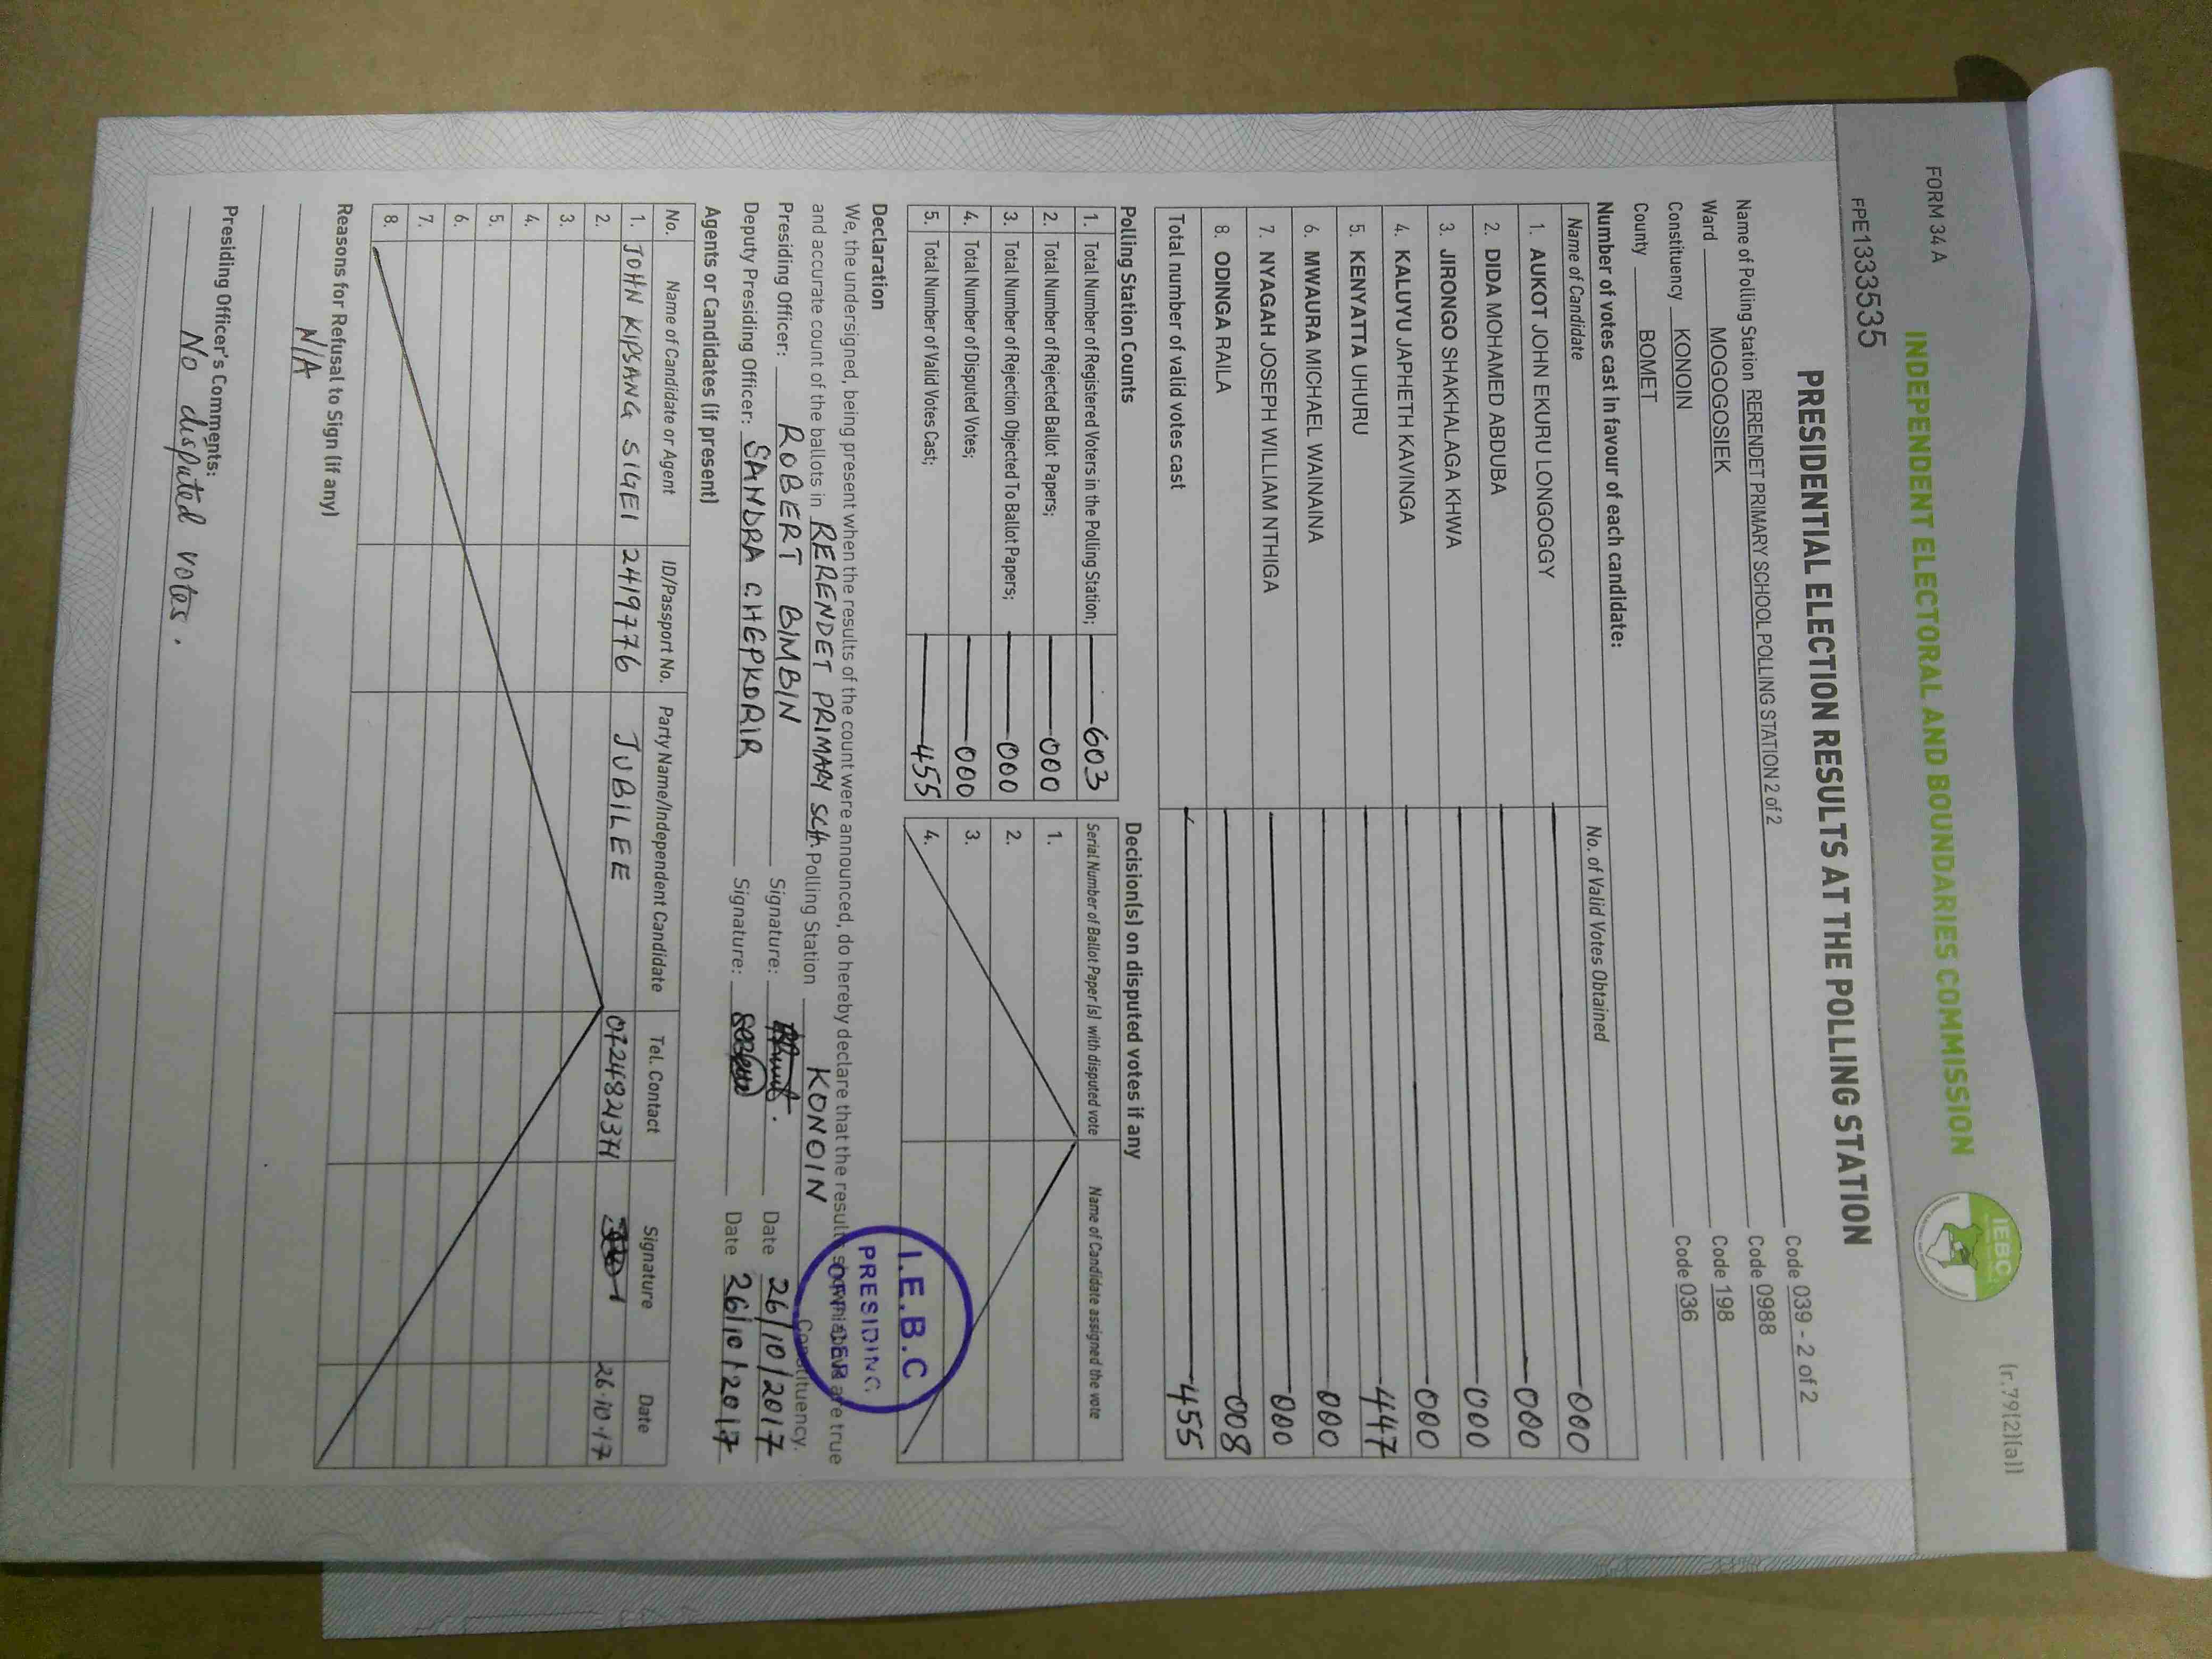 FORM 34 A
(r.79(2)(a))
INDEPENDENT ELECTORAL AND BOUNDARIES COMMISSION
IEBC
FPE1333535
PRESIDENTIAL ELECTION RESULTS AT THE POLLING STATION
Name of Polling Station RERENDET PRIMARY SCHOOL POLLING STATION 2 of 2 Code 039 - 2 of 2
Ward MOGOGOSIEK Code 0988
Constituency KONOIN Code 198
County BOMET Code 036
Number of votes cast in favour of each candidate:
Name of Candidate No. of Valid Votes Obtained
1. AUKOT JOHN EKURU LONGOGGY 000
2. DIDA MOHAMED ABDUBA 000
3. JIRONGO SHAKHALAGA KHWA 000
4. KALUYU JAPHETH KAVINGA 000
5. KENYATTA UHURU 447
6. MWAURA MICHAEL WAINAINA 000
7. NYAGAH JOSEPH WILLIAM NTHIGA 000
8. ODINGA RAILA 008
Total number of valid votes cast 455
Polling Station Counts
1. Total Number of Registered Voters in the Polling Station; 603
2. Total Number of Rejected Ballot Papers; 000
3. Total Number of Rejection Objected To Ballot Papers; 000
4. Total Number of Disputed Votes; 000
5. Total Number of Valid Votes Cast; 455
Decision(s) on disputed votes if any
Serial Number of Ballot Paper (s) with disputed vote Name of Candidate assigned the vote
1.
2.
3.
4.
Declaration
We, the undersigned, being present when the results of the count were announced, do hereby declare that the results shown above are true
and accurate count of the ballots in RERENDET PRIMARY SCH. Polling Station KONOIN Constituency.
Presiding Officer: ROBERT BIMBIN Signature: Date 26/10/2017
Deputy Presiding Officer: SANDRA CHEPKORIR Signature: Date 26/10/2017
I.E.B.C
PRESIDING
OFFICER
Agents or Candidates (if present)
No. Name of Candidate or Agent ID/Passport No. Party Name/Independent Candidate Tel. Contact Signature Date
1. JOHN KIPSANG SIGEI 2419776 JUBILEE 0724821371 26.10.17
2.
3.
4.
5.
6.
7.
8.
Reasons for Refusal to Sign (if any)
N/A
Presiding Officer's Comments:
No disputed votes.